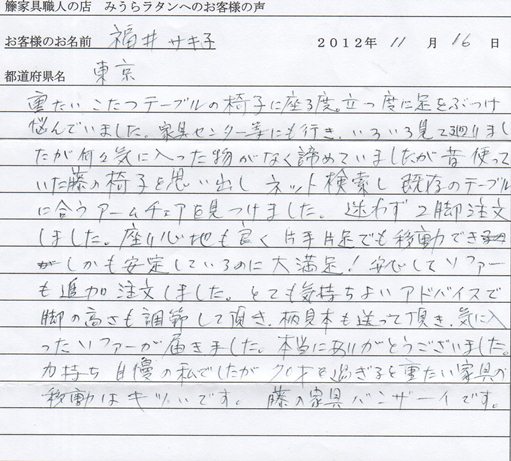 籐家具職人の店　みうらラタンへのお客様の声
お客様のお名前　福井サキ子　2012年 11 月 16 日
都道府県名　東京
重たいこたつテーブルの椅子に座る度、立つ度に足をぶつけ
悩んでいました。家具センター等にも行き、いろいろ見て廻りまし
たが何々気に入った物がなく諦めていましたが昔使って
いた藤の椅子を思い出しネット検索し既存のテーブル
に合うアームチェアを見つけました。迷わず2脚注文
しました。座り心地も良く片手片足でも移動でき
がしかも安定しているのに大満足！安心してソファー
も追加注文しました。とても気持ちよいアドバイスで
脚の高さも調節して頂き、柄見本も送って頂き、気に入
ったソファーが届きました。本当にありがとうございました。
力持ち自慢の私でしたが を過ぎると重たい家具の
移動はキツいです。藤の家具バンザーイです。